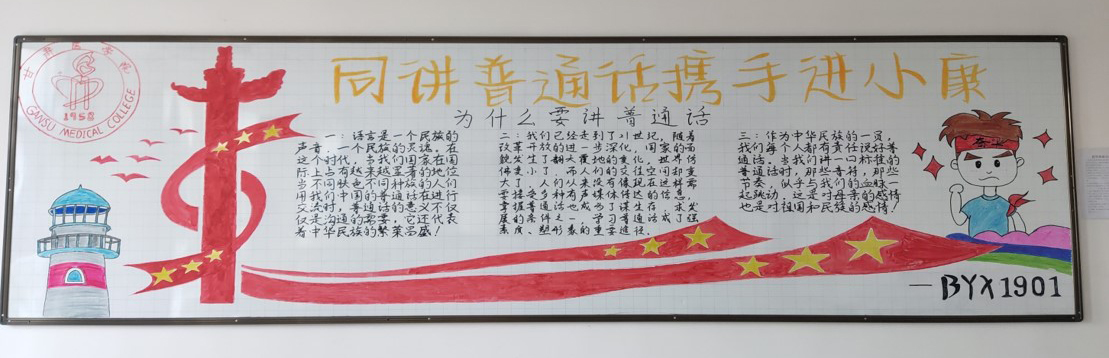 甘肃医学院
1958
GANSU MEDICAL COLLEGE
同讲普通话携手进小康
为什么要讲普通话
一：语言是一个民族的
声音，一个民族的灵魂。在
这个时代，当我们国家在国
际上占有越来越显著的地位
当不同肤色不同种族的人们
用我们中国的普通话在进行
交流时，普通话的意义不仅
仅是沟通的需要，它还代表
着中华民族的繁荣昌盛！
二：我们已经走到了21世纪，随着
改革开放的进一步深化，国家的面
貌发生了翻天覆地的变化，世界仿
佛变小了，而人们的交往空间却变
大了，人们从来没有像现在这样需
要接受多种有声媒体传达的信息，
掌握普通话也成为了谋生存、求发
展的条件之一，学习普通话成了强
素质、塑形象的重要途径。
三：作为中华民族的一员，
我们每个人都有责任说好普
通话。当我们讲一口标准的
普通话时，那些音符，那些
节奏，似乎与我们的血脉一
起跳动，这是对母亲的感情
也是对祖国和民族的感情！
—BYX1901